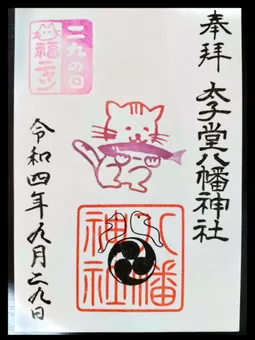 奉拝
太子堂八幡神社
二九の日
福
八幡
神社
令和四年九月二九日